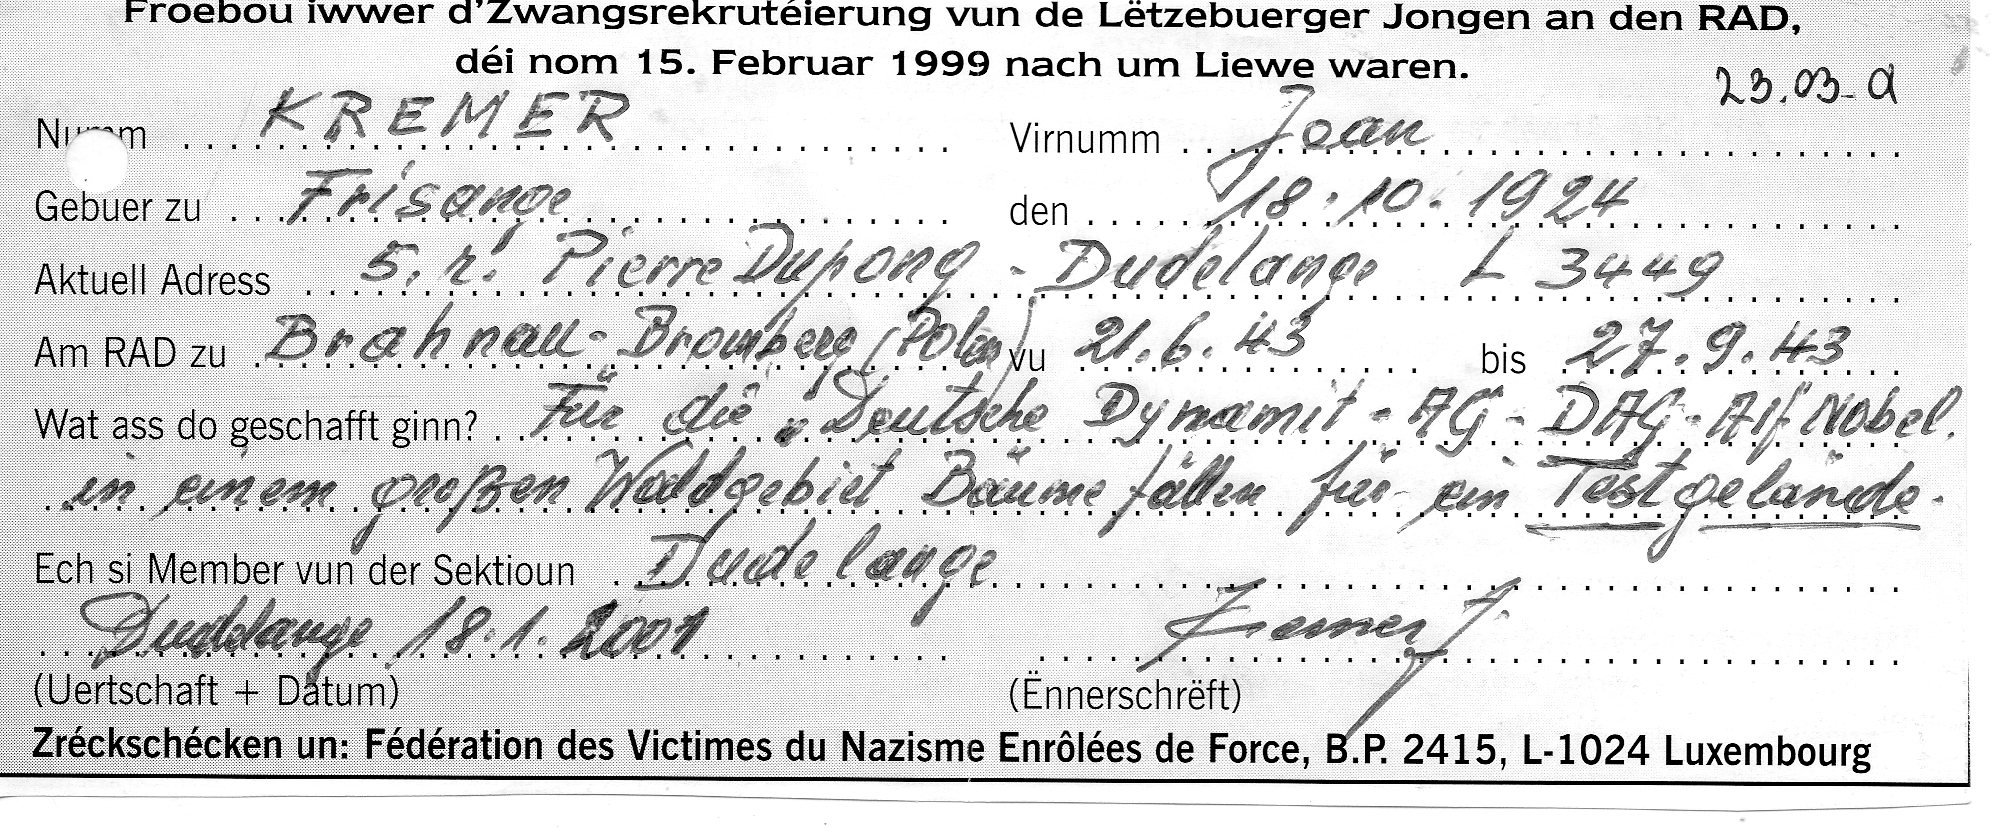 Froebou iwwer d'Zwangsrekrutéierung vun de Lëtzebuerger Jongen an den RAD,
déi nom 15. Februar 1999 nach um Liewe waren.
23.03-a
Numm KREMER Virnumm Jean
Gebuer zu Frisange den 18.10.1924
Aktuell Adress 5, r. Pierre Dupong - Dudelange L 3449
Am RAD zu Brahnau-Bromberg (Polen) vu 21.6.43 bis 27.9.43
Wat ass do geschafft ginn? Für die "Deutsche Dynamit-AG-DAG-Alf Nobel.
in einem großen Waldgebiet Bäume fällen für ein Testgelände.
Ech si Member vun der Sektioun Dudelange
Dudelange 18.1.2001 Kremer J.
(Uertschaft + Datum) (Ënnerschrëft)
Zréckschécken un: Fédération des Victimes du Nazisme Enrôlées de Force, B.P. 2415, L-1024 Luxembourg